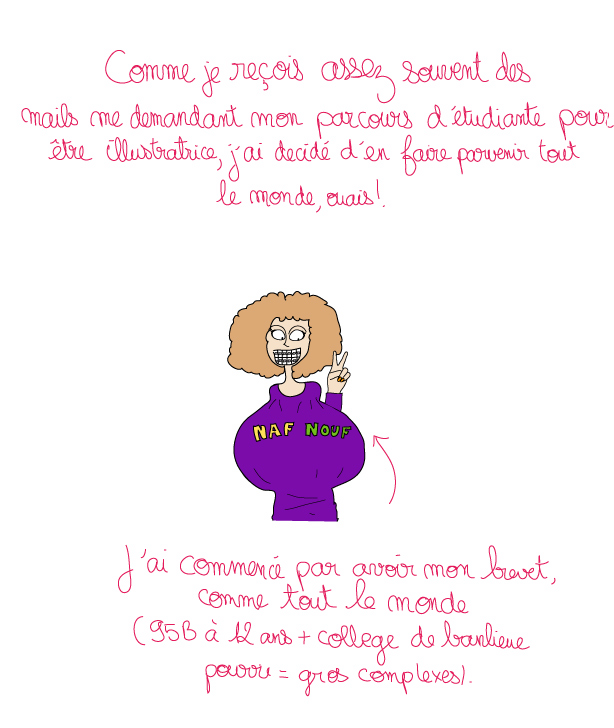 Comme je reçois assez souvent des
mails me demandant mon parcours d'étudiante pour
être illustratrice, j'ai decidé d'en faire parvenir tout
le monde, ouais!
NAF NOUF
J'ai commencé par avoir mon brevet,
comme tout le monde
(95B à 12 ans + college de banlieue
pourri = gros complexes).